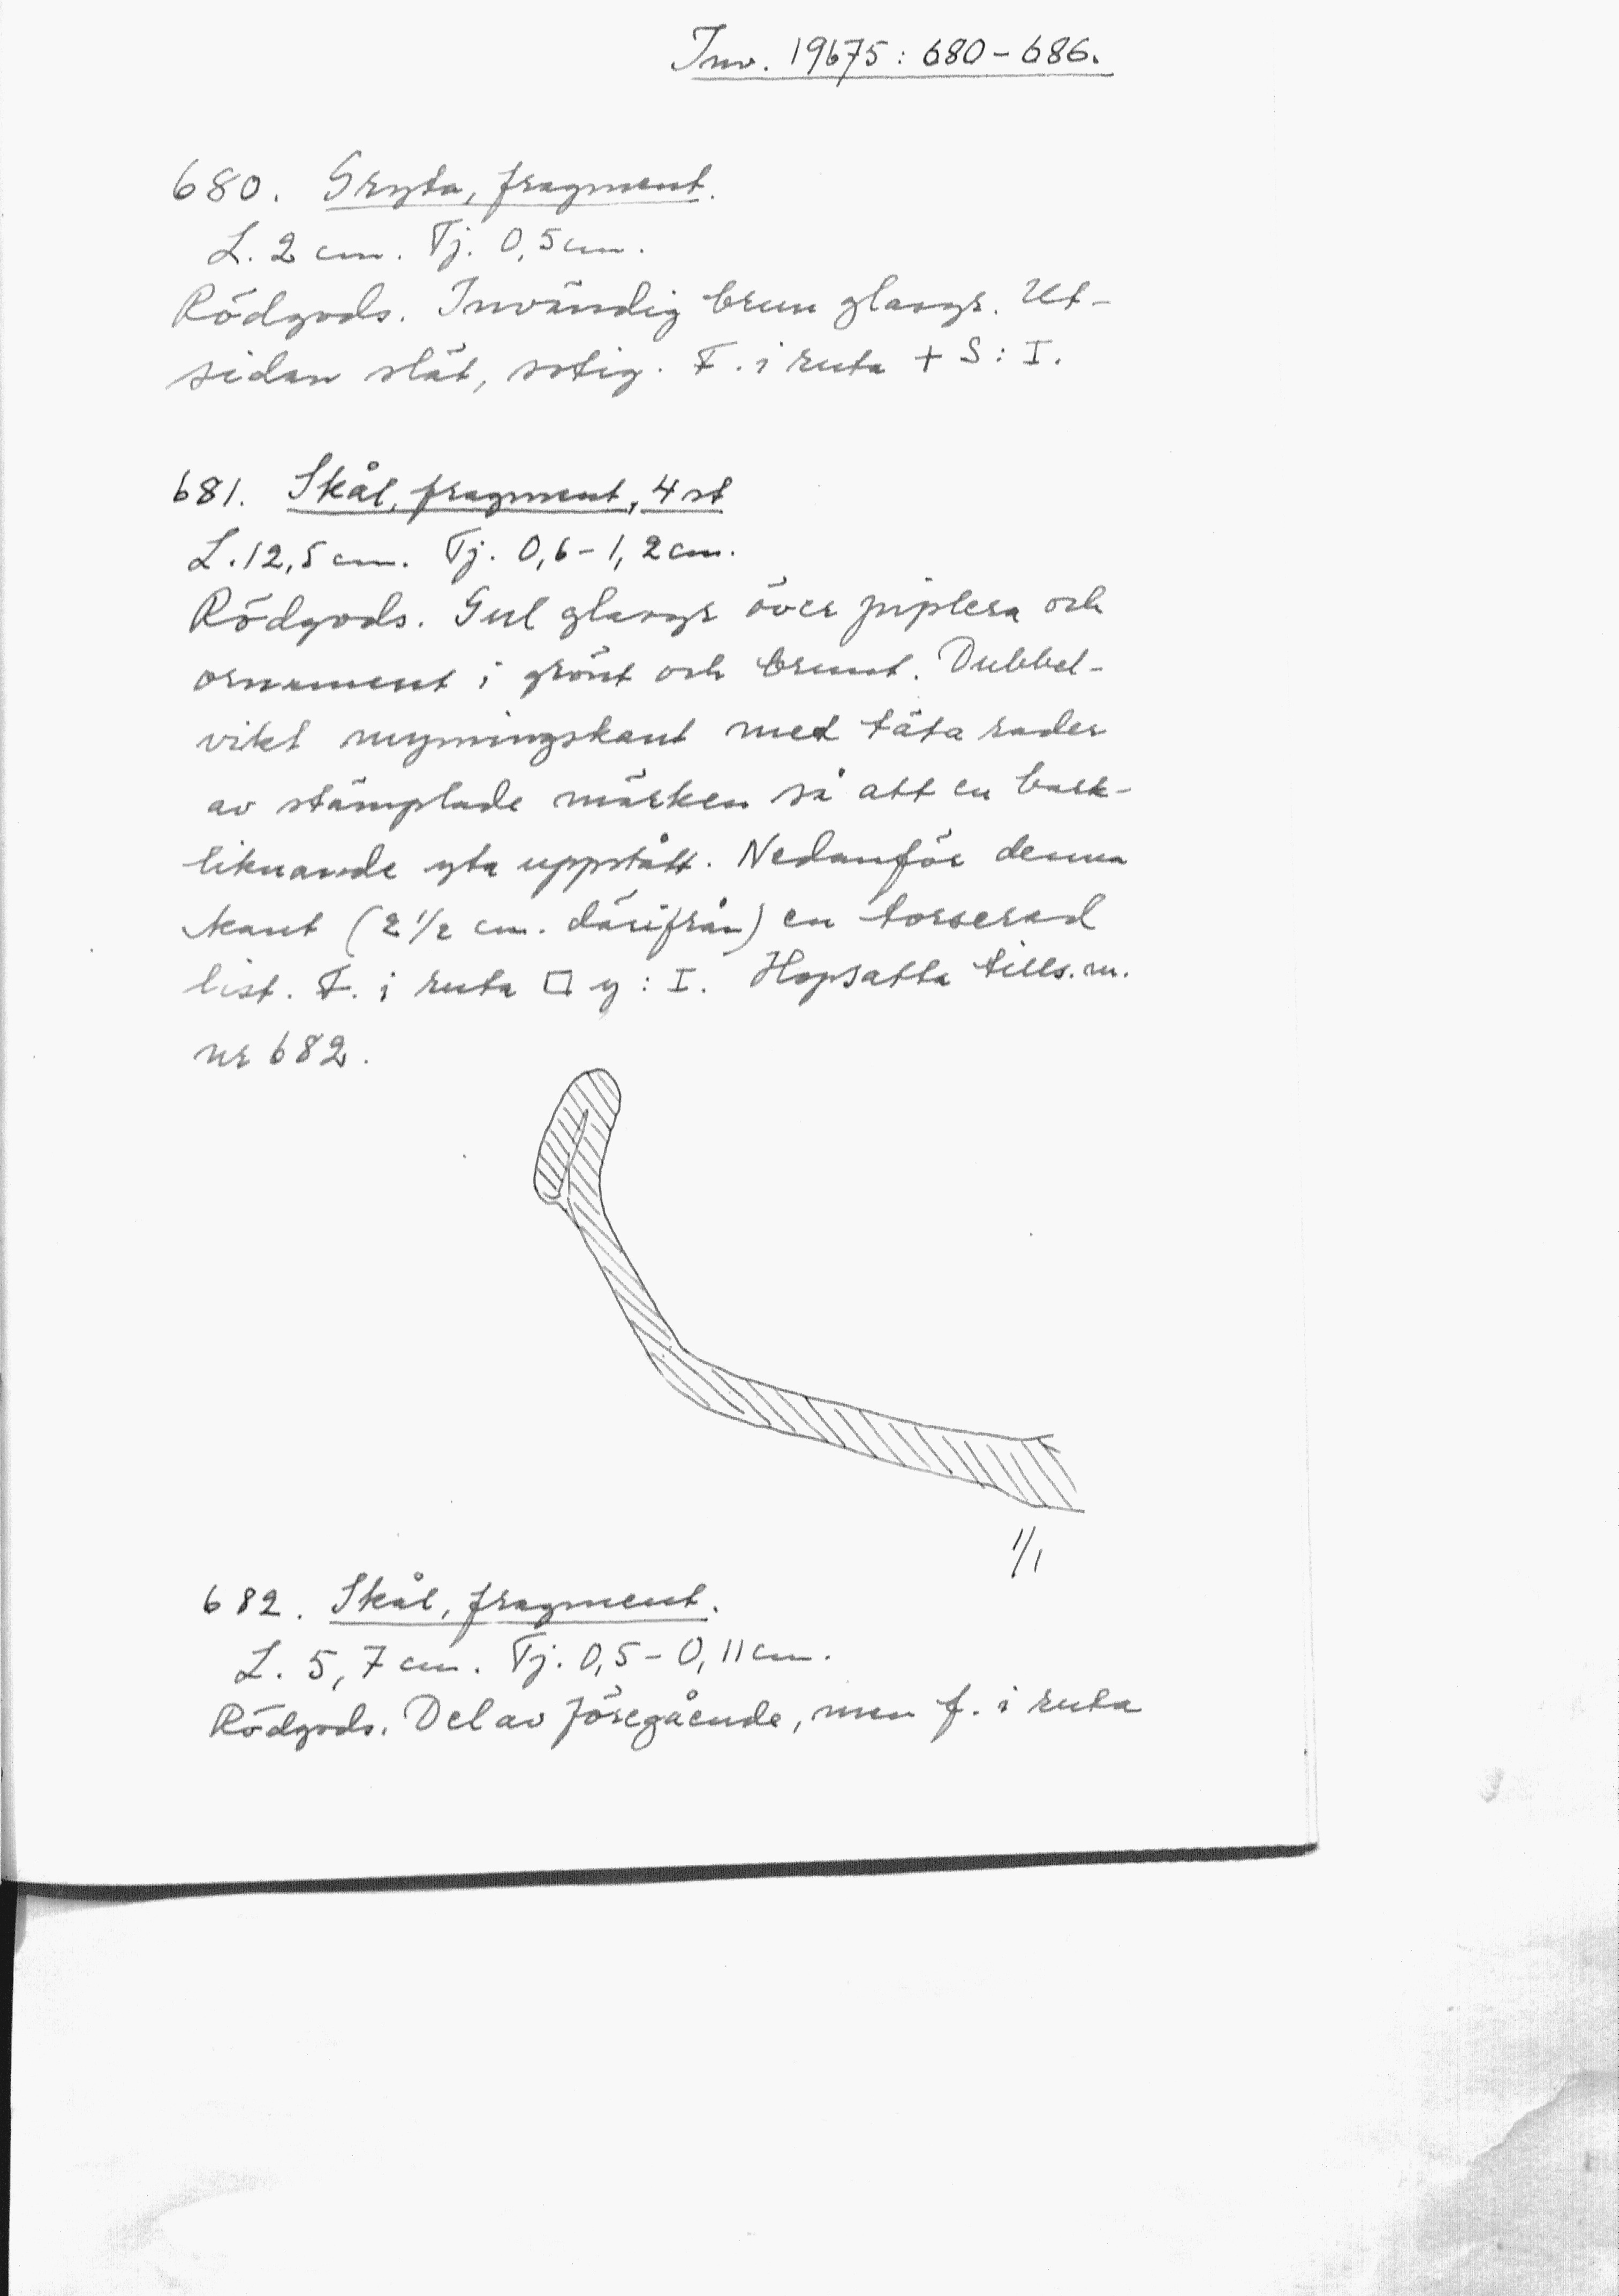 Inv. 19675: 680-686.
680. Gryta, fragment.
L. 2 cm. Tj. 0,5 cm.
Rödgods. Invändig brun glasyr. Ut-
sidan slät, sotig. F. i ruta + S: I.
681. Skål, fragment, 4 st
L. 12,5 cm. Tj. 0,6-1,2 cm.
Rödgods. Gul glasyr över piplera och
ornament i grönt och brunt. Dubbel-
vikt mynningskant med täta rader
av stämplade märken så att en bark-
liknande yta uppstått. Nedanför denna
kant (2 1/2 cm. därifrån) en torserad
list. F. i ruta □ y: I. Hopsatta tills. m.
nr 682.
1/1
682. Skål, fragment.
L. 5,7 cm. Tj. 0,5-0,11 cm.
Rödgods. Del av föregående, men f. i ruta